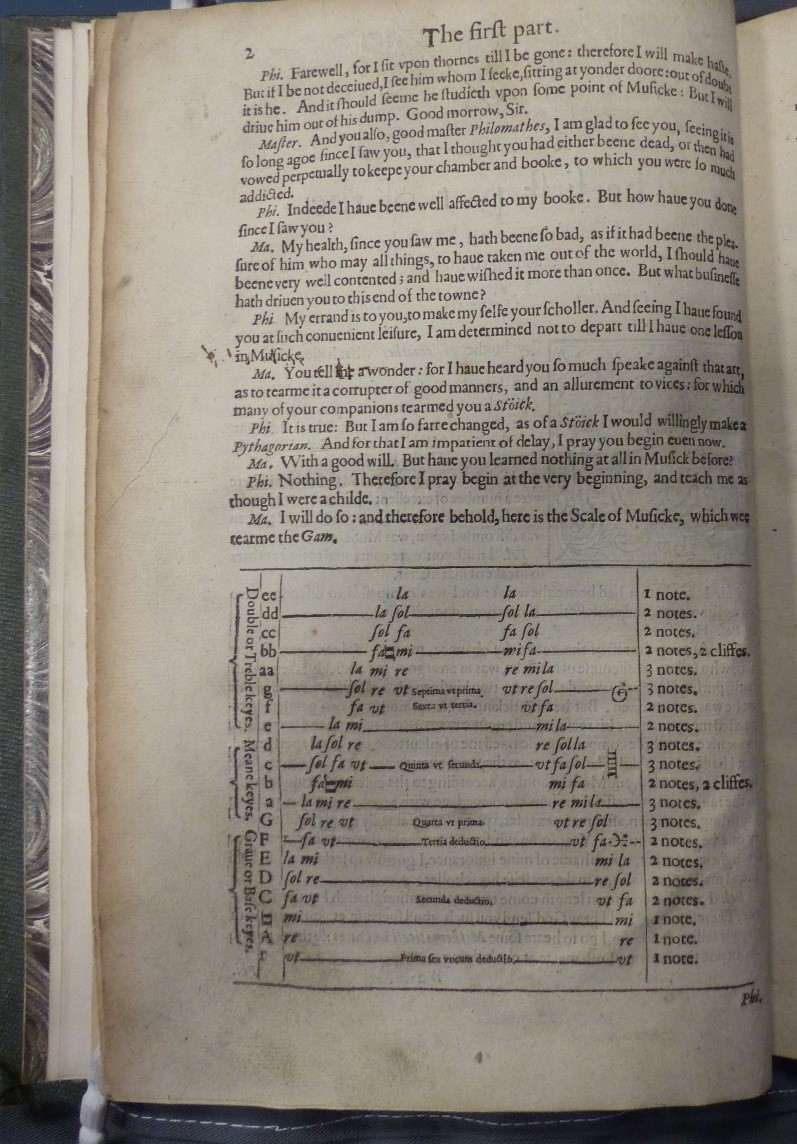 The firſt part.
2
Phi. Farewell, for I ſit vpon thornes till I be gone: therefore I will make haſte.
But if I be not deceiued, I ſee him whom I ſeeke, ſitting at yonder doore: out of doubt
it is he. And it ſhould ſeeme he ſtudieth vpon ſome point of Muſicke: But I will
driue him out of his dump. Good morrow, Sir.
Maſter. And you alſo, good maſter Philomathes, I am glad to ſee you, ſeeing it is
ſo long agoe ſince I ſaw you, that I thought you had either beene dead, or then had
vowed perpetually to keepe your chamber and booke, to which you were ſo much
addicted.
Phi. Indeede I haue beene well affected to my booke. But how haue you done
ſince I ſaw you?
Ma. My health, ſince you ſaw me, hath beene ſo bad, as if it had beene the plea-
ſure of him who may all things, to haue taken me out of the world, I ſhould haue
beene very well contented; and haue wiſhed it more than once. But what buſineſſe
hath driuen you to this end of the towne?
Phi. My errand is to you, to make my ſelfe your ſcholler. And ſeeing I haue found
you at ſuch conuenient leiſure, I am determined not to depart till I haue one leſſon
in Muſicke.
Ma. You tell a wonder: for I haue heard you ſo much ſpeake againſt that art,
as to tearme it a corrupter of good manners, and an allurement to vices: for which
many of your companions tearmed you a Stöick.
Phi. It is true: But I am ſo farre changed, as of a Stöick I would willingly make a
Pythagorian. And for that I am impatient of delay, I pray you begin euen now.
Ma. With a good will. But haue you learned nothing at all in Muſick before?
Phi. Nothing. Therefore I pray begin at the very beginning, and teach me as
though I were a childe.
Ma. I will do ſo: and therefore behold, here is the Scale of Muſicke, which wee
tearme the Gam.
Double or Treble keyes.
ee la la 1 note.
dd la ſol ſol la 2 notes.
cc ſol fa fa ſol 2 notes.
bb fa mi mi fa 2 notes, 2 cliffes.
aa la mi re re mi la 3 notes.
g ſol re vt Septima vt prima. vt re ſol 3 notes.
f fa vt Sexta vt tertia. vt fa 2 notes.
e la mi mi la 2 notes.
Meane keyes.
d la ſol re re ſol la 3 notes.
c ſol fa vt Quinta vt ſecunda. vt fa ſol 3 notes.
b fa mi mi fa 2 notes, 2 cliffes.
a la mi re re mi la 3 notes.
G ſol re vt Quarta vt prima. vt re ſol 3 notes.
Graue or Baſe keyes.
F fa vt Tertia deductio. vt fa 2 notes.
E la mi mi la 2 notes.
D ſol re re ſol 2 notes.
C fa vt Secunda deductio. vt fa 2 notes.
mi mi 1 note.
A re re 1 note.
Γ vt Prima ſex vocum deductio. vt 1 note.
Phi.